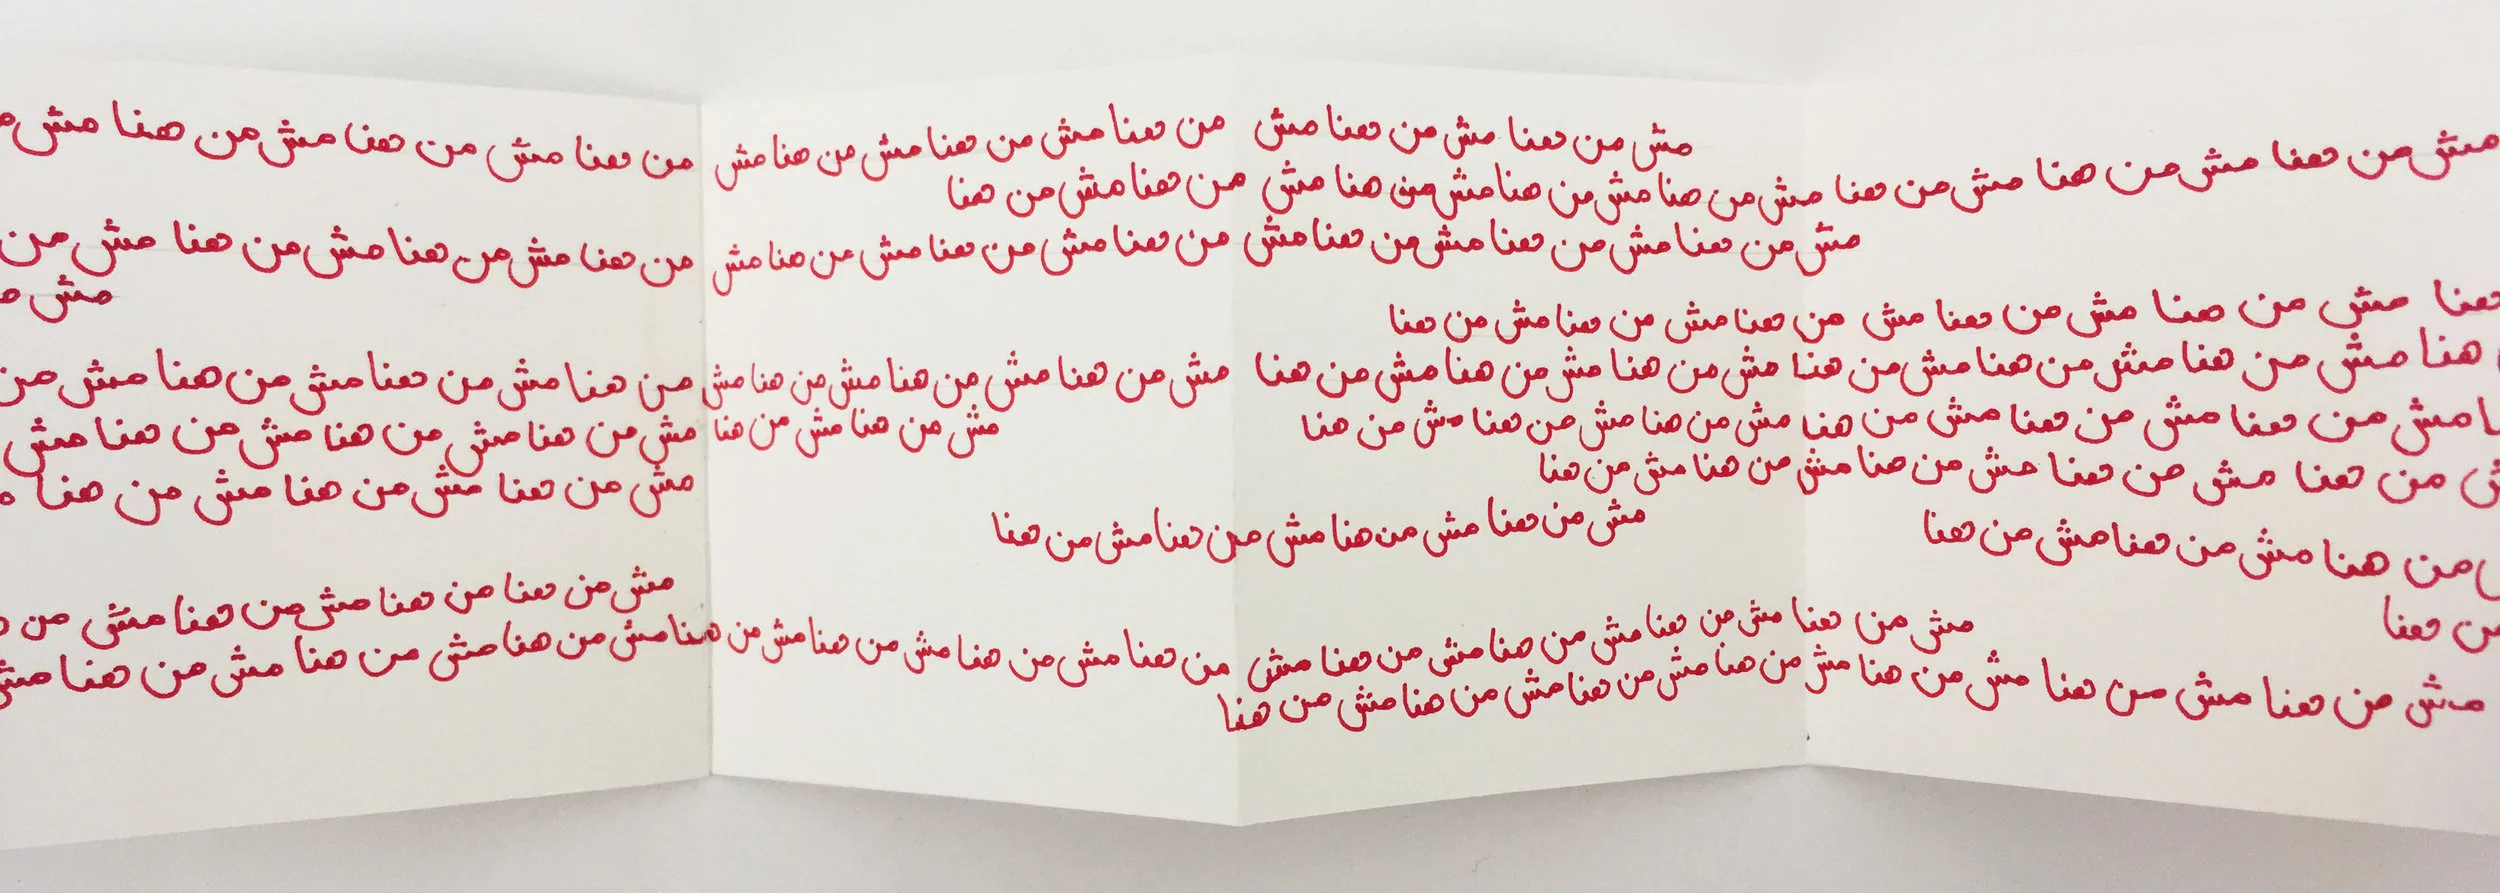 مش من هنا مش من هنا مش من هنا مش من هنا مش من هنا مش من هنا مش من هنا مش من هنا مش
مش من هنا مش من هنا مش من هنا مش من هنا مش من هنا مش من هنا مش من هنا مش من هنا
مش من هنا مش من هنا مش من هنا مش من هنا مش من هنا مش من هنا مش من هنا مش من هنا مش من هنا مش من
هنا مش من هنا مش من هنا مش من هنا مش من هنا مش من هنا
مش
هنا مش من هنا مش من هنا مش من هنا مش من هنا مش من هنا مش من هنا مش من هنا مش من هنا مش من هنا مش من هنا مش من هنا مش من هنا مش من
مش من هنا مش من هنا مش من هنا مش من هنا مش من هنا مش من هنا
مش من هنا مش من هنا مش من هنا مش من هنا مش من هنا مش
من هنا مش من هنا مش من هنا مش من هنا مش من هنا
مش من هنا مش من هنا مش من هنا
من هنا مش من هنا مش من هنا
مش من هنا مش من هنا مش من هنا مش من هنا
مش من هنا من هنا مش من هنا مش من
من هنا
مش من هنا مش من هنا مش من هنا مش من هنا مش من هنا مش من هنا مش من هنا مش من هنا مش من هنا مش من هنا مش من هنا مش
مش من هنا مش من هنا مش من هنا مش من هنا مش من هنا مش من هنا مش من هنا